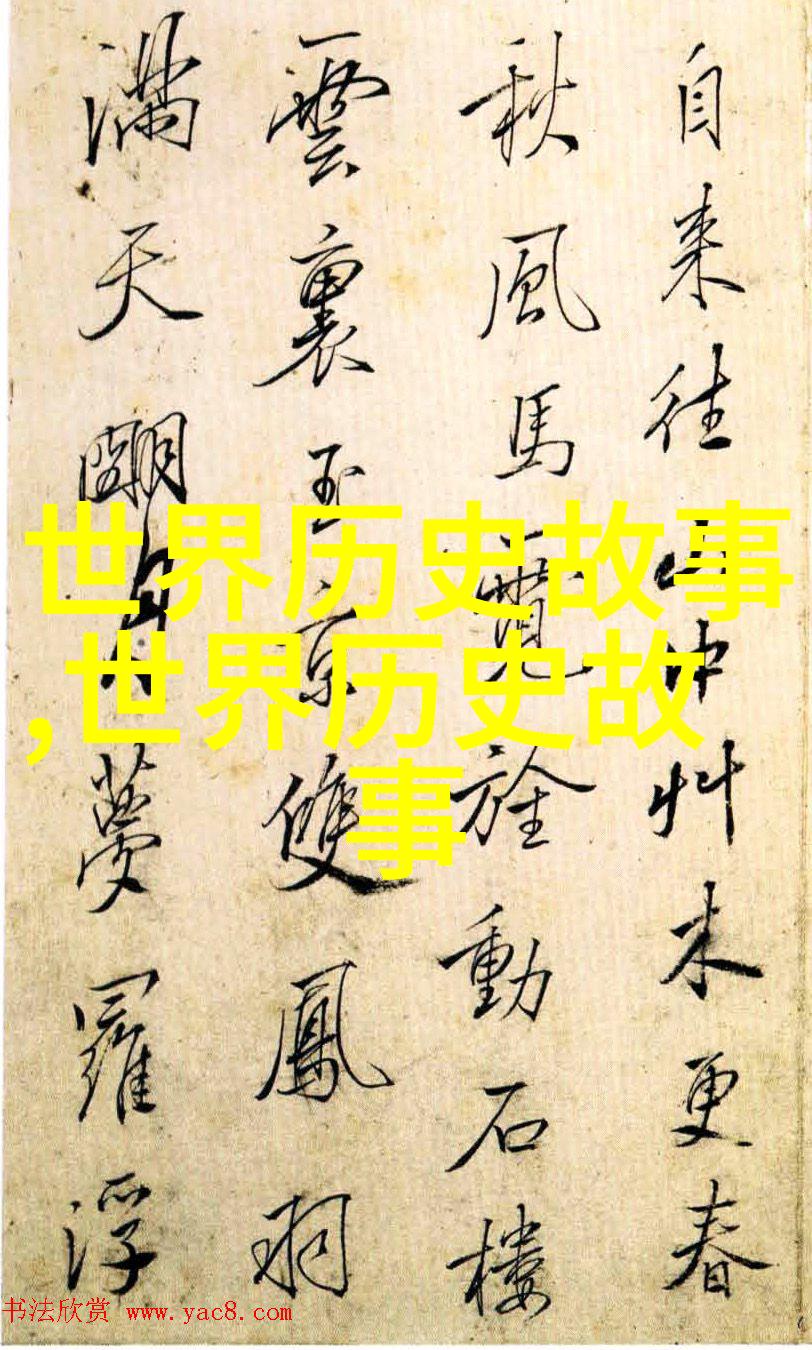 自来往山中艸木更春
秋風馬霓旌動石樓
雲裏玉京雙鳳羽
滿天朙月夢羅浮
世界历史故事
,世界历史故
事
书法欣赏 www.yac8.com